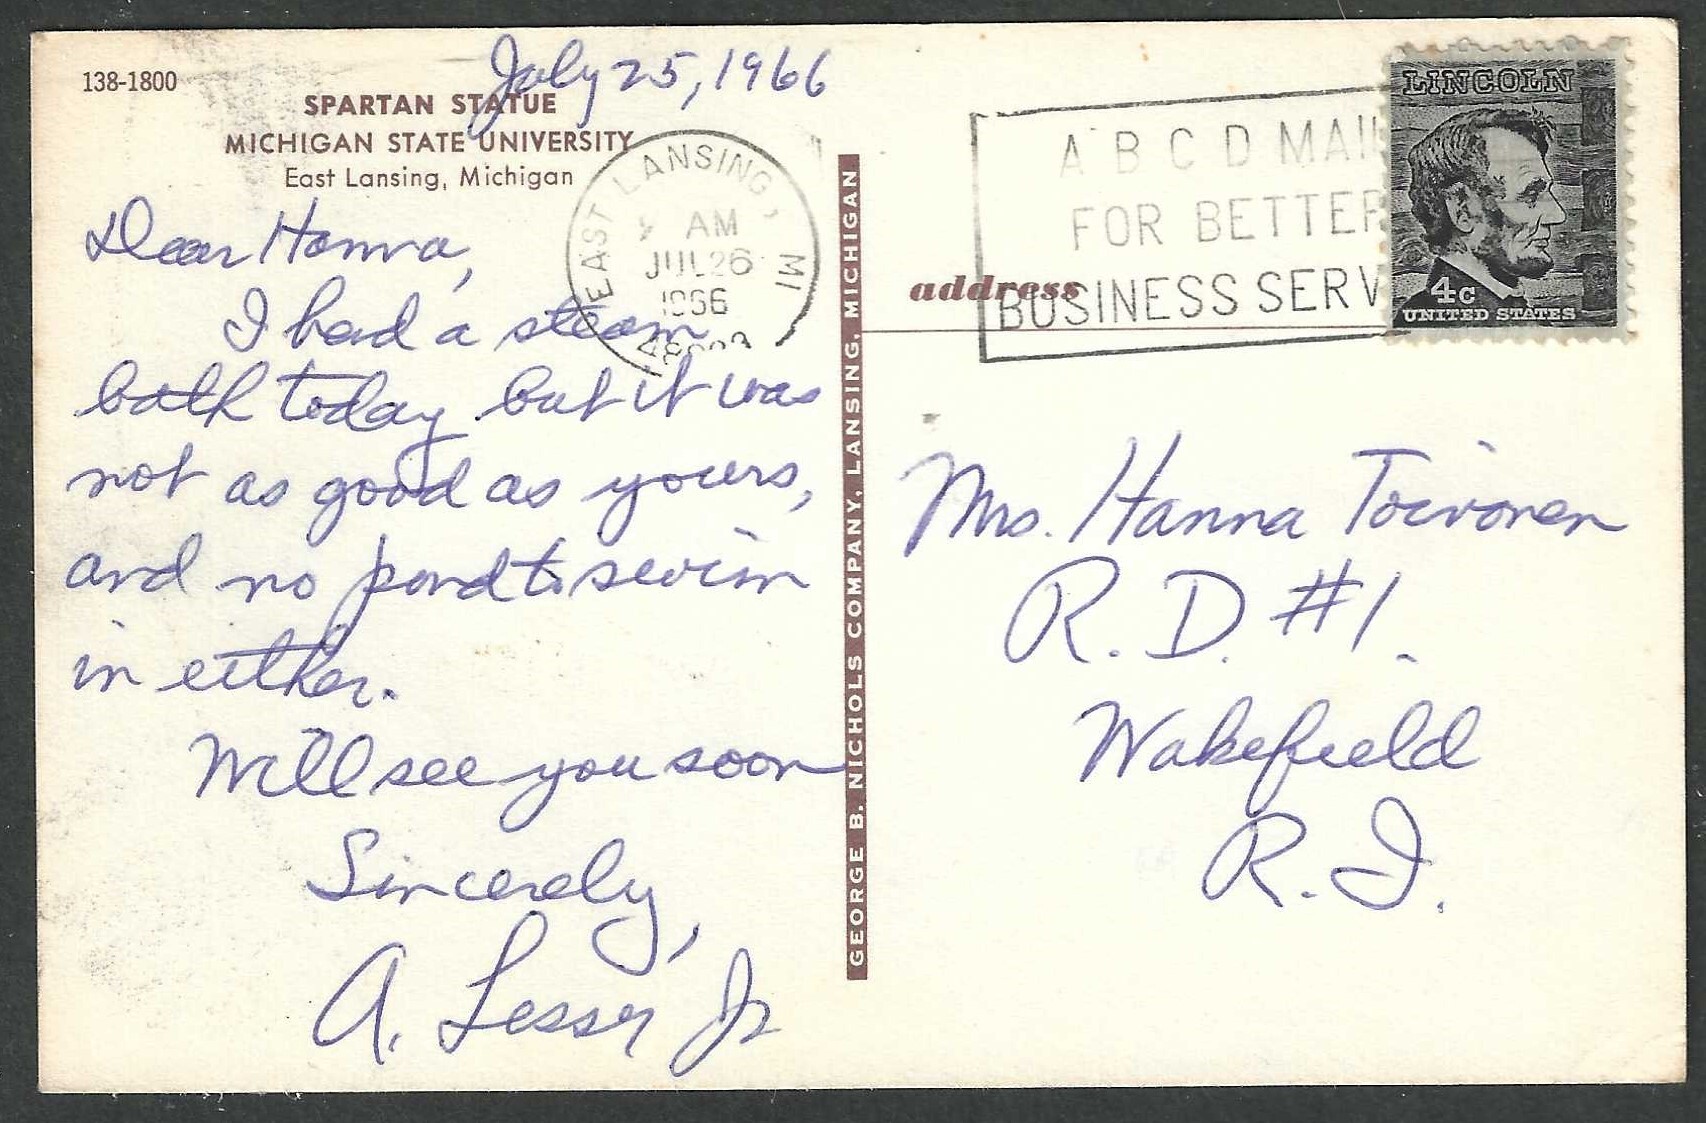 138-1800
July 25, 1966
SPARTAN STATUE
MICHIGAN STATE UNIVERSITY
East Lansing, Michigan
Dear Hanna,
I had a steam
bath today but it was
not as good as yours,
and no pond to swim
in either.
Will see you soon
Sincerely,
A. Lesser Jr
EAST LANSING, MI
AM
JUL 26
1966
GEORGE B. NICHOLS COMPANY, LANSING, MICHIGAN
A B C D MAIL
FOR BETTER
BUSINESS SERV
address
LINCOLN
4c
UNITED STATES
Mrs. Hanna Toivonen
R. D. #1.
Wakefield
R. I.